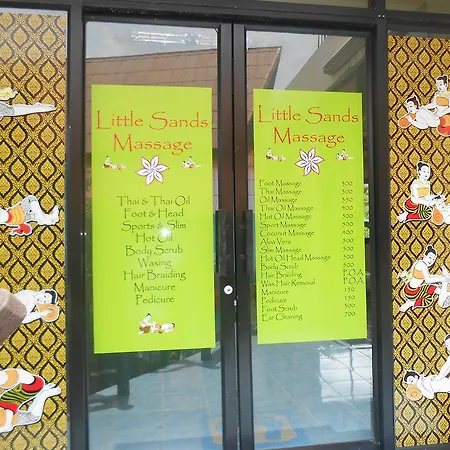 Little Sands
Massage
Thai & Thai Oil
Foot & Head
Sports & Slim
Hot Oil
Body Scrub
Waxing
Hair Braiding
Manicure
Pedicure
Little Sands
Massage
Foot Massage 300
Thai Massage 300
Oil Massage 350
Thai Oil Massage 400
Hot Oil Massage 500
Sport Massage 500
Coconut Massage 400
Aloa Vera 500
Slim Massage 500
Hot Oil Head Massage 300
Body Scrub 500
Hair Braiding P.O.A
Wax Hair Removal P.O.A
Manicure 150
Pedicure 150
Foot Scrub 300
Ear Cleaning 700